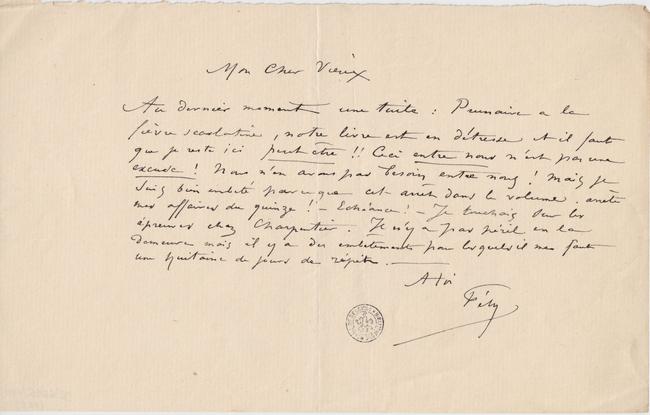 Mon Cher Vieux
Au dernier moment une tuile : Prunaire a la
fièvre scarlatine, notre livre est en détresse et il faut
que je reste ici peut être !! Ceci entre nous n'est pas une
excuse ! Nous n'en avons pas besoin entre nous ! Mais je
suis bien embêté parce que cet arrêt dans le volume arrête
mes affaires du quinze ! - Echéance ! - Je touchais sur les
épreuves chez Charpentier. Il n'y a pas péril en la
demeure mais il y a des embêtements pour lesquels il me faut
une quinzaine de jours de répit. -
A toi
Fély